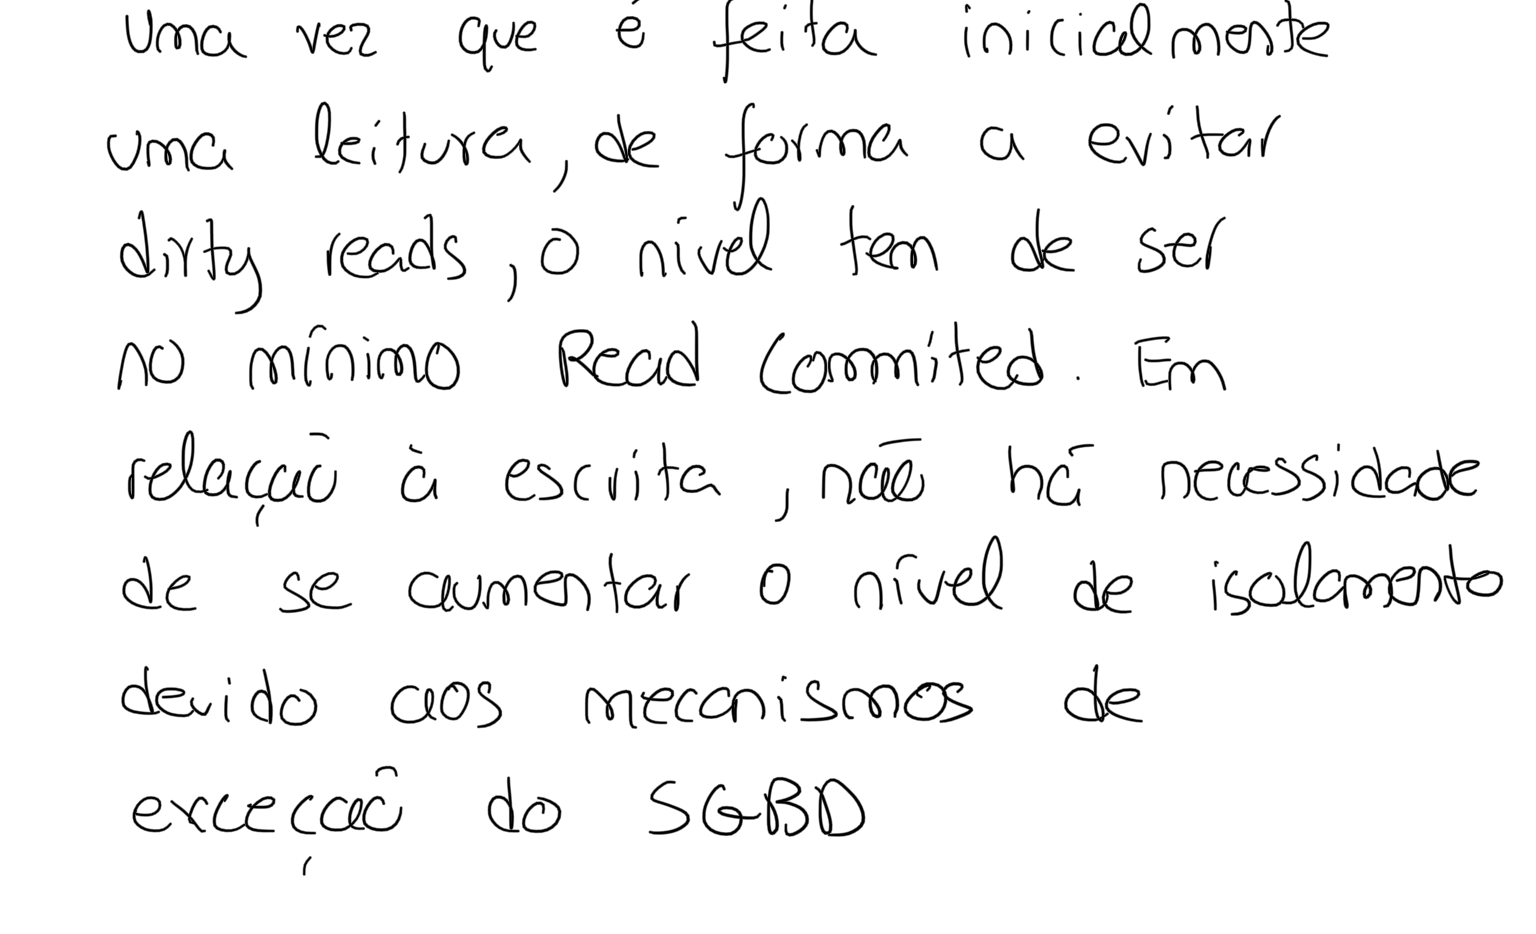 Uma vez que é feita inicialmente
uma leitura, de forma a evitar
dirty reads, o nível tem de ser
no mínimo Read Commited. Em
relação à escrita, não há necessidade
de se aumentar o nível de isolamento
devido aos mecanismos de
exceção do SGBD